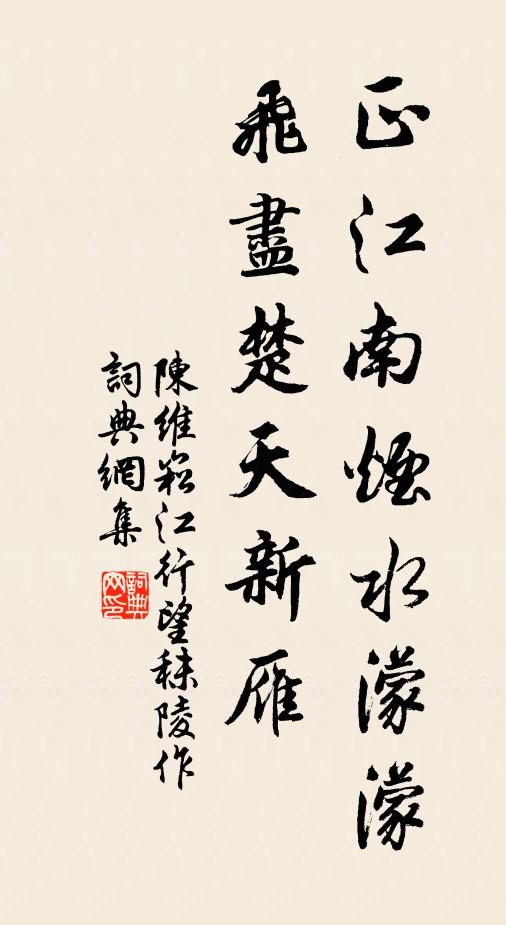 正江南煙水濛濛
飛盡楚天新雁
陳維崧江行望秣陵作
詞典網集
詞典网印